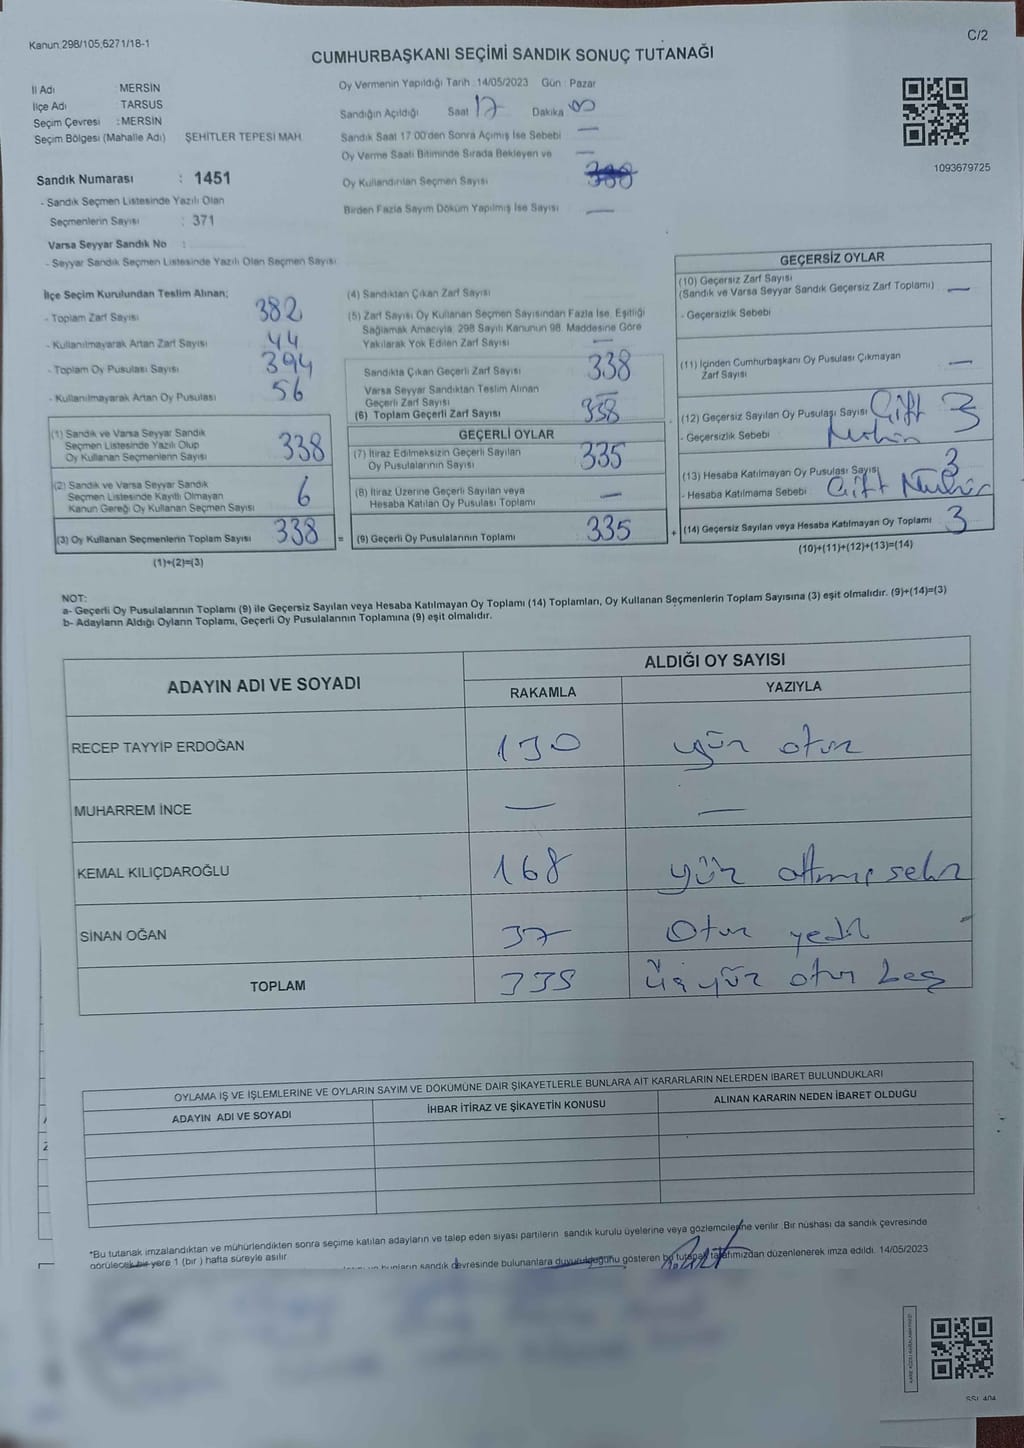 Kanun:298/105;6271/18-1
C/2
CUMHURBAŞKANI SEÇİMİ SANDIK SONUÇ TUTANAĞI
İl Adı : MERSİN
İlçe Adı : TARSUS
Seçim Çevresi : MERSİN
Seçim Bölgesi (Mahalle Adı) ŞEHİTLER TEPESİ MAH.
Sandık Numarası : 1451
- Sandık Seçmen Listesinde Yazılı Olan
Seçmenlerin Sayısı : 371
Varsa Seyyar Sandık No :
- Seyyar Sandık Seçmen Listesinde Yazılı Olan Seçmen Sayısı
Oy Vermenin Yapıldığı Tarih : 14/05/2023 Gün : Pazar
Sandığın Açıldığı Saat 17 Dakika 00
Sandık Saat 17:00'den Sonra Açımış İse Sebebi —
Oy Verme Saati Bitiminde Sırada Bekleyen ve —
Oy Kullandırılan Seçmen Sayısı
Birden Fazla Sayım Döküm Yapılmış İse Sayısı —
1093679725
İlçe Seçim Kurulundan Teslim Alınan;
- Toplam Zarf Sayısı 382
- Kullanılmayarak Artan Zarf Sayısı 44
- Toplam Oy Pusulası Sayısı 394
- Kullanılmayarak Artan Oy Pusulası 56
(1) Sandık ve Varsa Seyyar Sandık
Seçmen Listesinde Yazılı Olup
Oy Kullanan Seçmenlerin Sayısı 338
(2) Sandık ve Varsa Seyyar Sandık
Seçmen Listesinde Kayıtlı Olmayan
Kanun Gereği Oy Kullanan Seçmen Sayısı 6
(3) Oy Kullanan Seçmenlerin Toplam Sayısı 338 =
(1)+(2)=(3)
(4) Sandıktan Çıkan Zarf Sayısı
(5) Zarf Sayısı Oy Kullanan Seçmen Sayısından Fazla İse, Eşitliği
Sağlamak Amacıyla, 298 Sayılı Kanunun 98. Maddesine Göre
Yakılarak Yok Edilen Zarf Sayısı —
Sandıkta Çıkan Geçerli Zarf Sayısı 338
Varsa Seyyar Sandıktan Teslim Alınan
Geçerli Zarf Sayısı
(6) Toplam Geçerli Zarf Sayısı 338
GEÇERLİ OYLAR
(7) İtiraz Edilmeksizin Geçerli Sayılan
Oy Pusulalarının Sayısı 335
(8) İtiraz Üzerine Geçerli Sayılan veya
Hesaba Katılan Oy Pusulası Toplamı —
(9) Geçerli Oy Pusulalarının Toplamı 335 +
GEÇERSİZ OYLAR
(10) Geçersiz Zarf Sayısı
(Sandık ve Varsa Seyyar Sandık Geçersiz Zarf Toplamı) —
- Geçersizlik Sebebi
(11) İçinden Cumhurbaşkanı Oy Pusulası Çıkmayan
Zarf Sayısı —
(12) Geçersiz Sayılan Oy Pusulası Sayısı Çift 3
- Geçersizlik Sebebi Mühür
(13) Hesaba Katılmayan Oy Pusulası Sayısı 3
- Hesaba Katılmama Sebebi Çift Mühür
(14) Geçersiz Sayılan veya Hesaba Katılmayan Oy Toplamı 3
(10)+(11)+(12)+(13)=(14)
NOT:
a- Geçerli Oy Pusulalarının Toplamı (9) ile Geçersiz Sayılan veya Hesaba Katılmayan Oy Toplamı (14) Toplamları, Oy Kullanan Seçmenlerin Toplam Sayısına (3) eşit olmalıdır. (9)+(14)=(3)
b- Adayların Aldığı Oyların Toplamı, Geçerli Oy Pusulalarının Toplamına (9) eşit olmalıdır.
ADAYIN ADI VE SOYADI
ALDIĞI OY SAYISI
RAKAMLA YAZIYLA
RECEP TAYYİP ERDOĞAN 130 yüz otuz
MUHARREM İNCE — —
KEMAL KILIÇDAROĞLU 168 yüz altmış sekiz
SİNAN OĞAN 37 Otuz yedi
TOPLAM 335 üç yüz otuz beş
OYLAMA İŞ VE İŞLEMLERİNE VE OYLARIN SAYIM VE DÖKÜMÜNE DAİR ŞİKAYETLERLE BUNLARA AİT KARARLARIN NELERDEN İBARET BULUNDUKLARI
ADAYIN ADI VE SOYADI İHBAR İTİRAZ VE ŞİKAYETİN KONUSU ALINAN KARARIN NEDEN İBARET OLDUĞU
*Bu tutanak imzalandıktan ve mühürlendikten sonra seçime katılan adayların ve talep eden siyasi partilerin sandık kurulu üyelerine veya gözlemcilerine verilir. Bir nüshası da sandık çevresinde
görülecek bir yere 1 (bir) hafta süreyle asılır.
bunların sandık çevresinde bulunanlara duyurulduğunu gösteren bu tutanak tarafımızdan düzenlenerek imza edildi. 14/05/2023